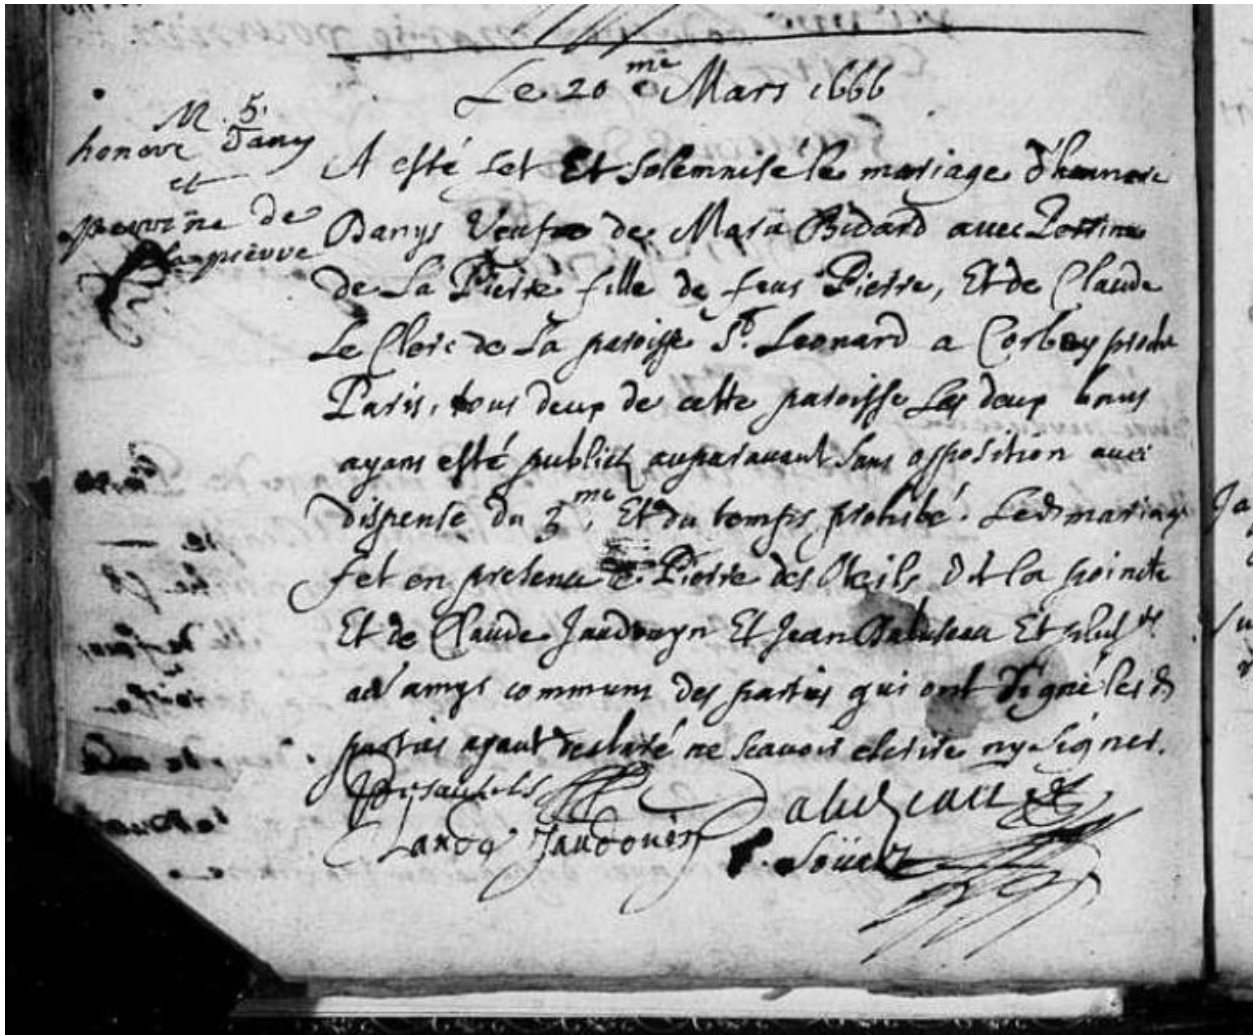 Le 20.me Mars 1666
M. 5.
honoré Dany
et
perrine de
lapierre
A esté fet Et solemnisé le mariage d'honnore
Danys Veufue de Marie Bidard auec Perrine
de La Pierre fille de feus Pierre, Et de Claude
Le Clerc de La paroisse St. Leonard a Corbey proche
Paris, tous deux de cette paroisse Les deux bans
ayans esté publiez auparauant sans opposition auec
dispense du 3.me Et du temps prohibé. Led. mariage
fet en presence de Pierre des Oteils dit la pointe
Et de Claude Jaudouyn Et Jean Et plusrs.
amys communs des parties qui ont signé lesd.
parties ayant declaré ne scauoir escrire ny signer.
PDesautels
Claude Jaudouin
G. Soüart